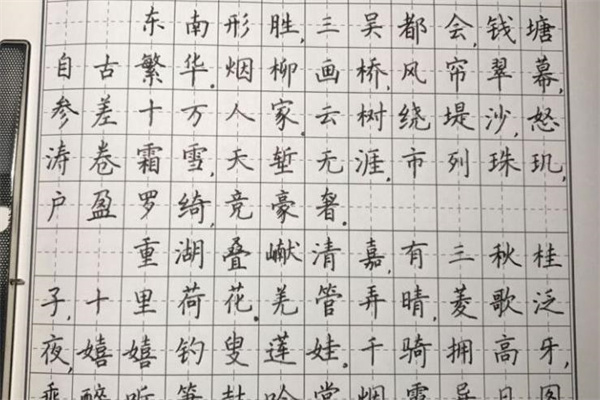 东南形胜,三吴都会,钱塘
自古繁华.烟柳画桥,风帘翠幕,
参差十万人家.云树绕堤沙,怒
涛卷霜雪,天堑无涯,市列珠玑,
户盈罗绮,竞豪奢.
重湖叠𪩘清嘉,有三秋桂
子,十里荷花.羌管弄晴,菱歌泛
夜,嬉嬉钓叟莲娃.千骑拥高牙,
乘醉听箫鼓吟赏烟霞异日图